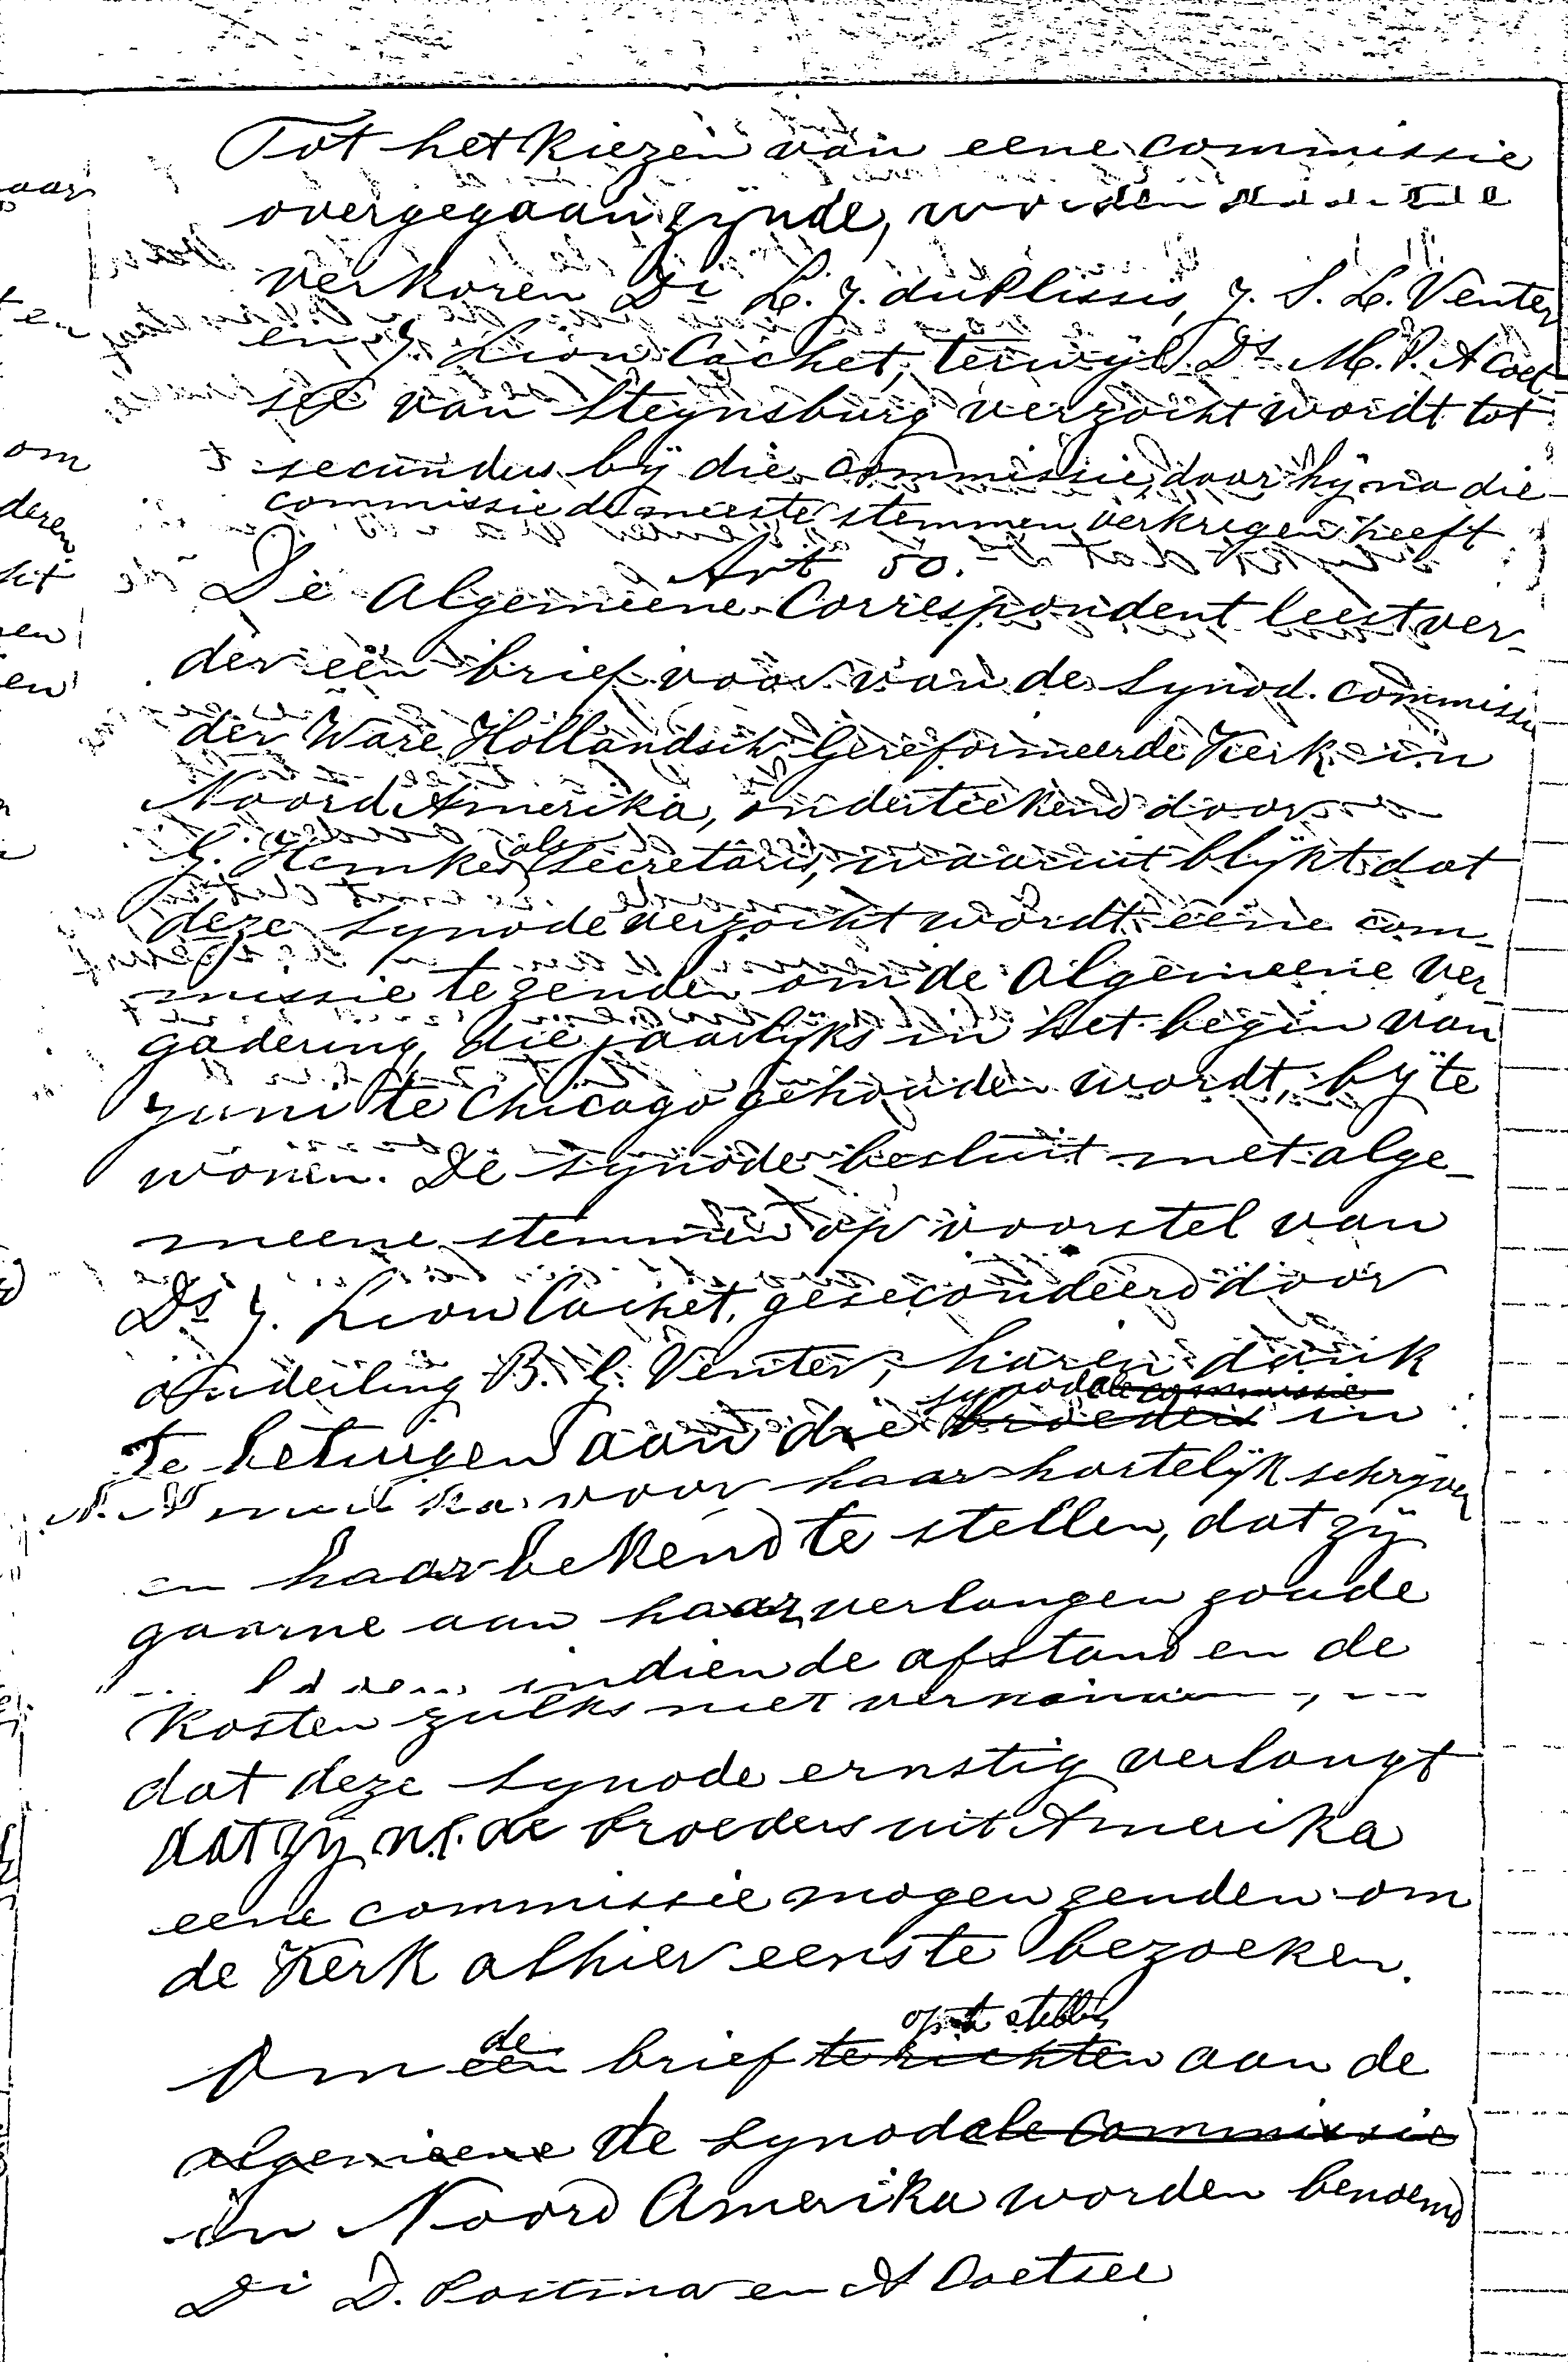 Tot het kiezen van eene commissie
overgegaan zijnde, worden
verkoren Di L. J. du Plissis, J. S. L. Venter
en J. Lion Cachet, terwijl Ds M. P. A Coet-
see van Steynsburg verzocht wordt tot
secundus bij die commissie, daar hij na die
commissie de meeste stemmen verkregen heeft
Art 50.
De Algemeene Correspondent leest ver-
der een brief voor van de Synod. commissie
der Ware Hollandsch Gereformeerde Kerk in
Noord Amerika, onderteekend door
G. Hemkes als Secretaris, waaruit blijkt dat
deze Synode verzocht wordt eene com-
missie te zenden om de Algemeene ver-
gadering, die jaarlijks in het begin van
Juni te Chicago gehouden wordt, bij te
wonen. De Synode besluit met alge-
meene stemmen op voorstel van
Ds J. Lion Cachet, gesecondeerd door
Ouderling B. G. Venter, haren dank
te betuigen aan die synodale commissie broeders in
N. Amerika voor haar hartelijk schrijven
en haar bekend te stellen, dat zij
gaarne aan haar verlangen zoude
indien de afstand en de
Kosten zulks niet
dat deze Synode ernstig verlangt
dat zij n.l. de broeders uit Amerika
eene commissie mogen zenden om
de Kerk alhier eens te bezoeken.
Om een de brief te richten op te stellen aan de
algemeene de Synodale Commissie
in Noord Amerika worden benoemd
Di D. Postma en A Coetsee